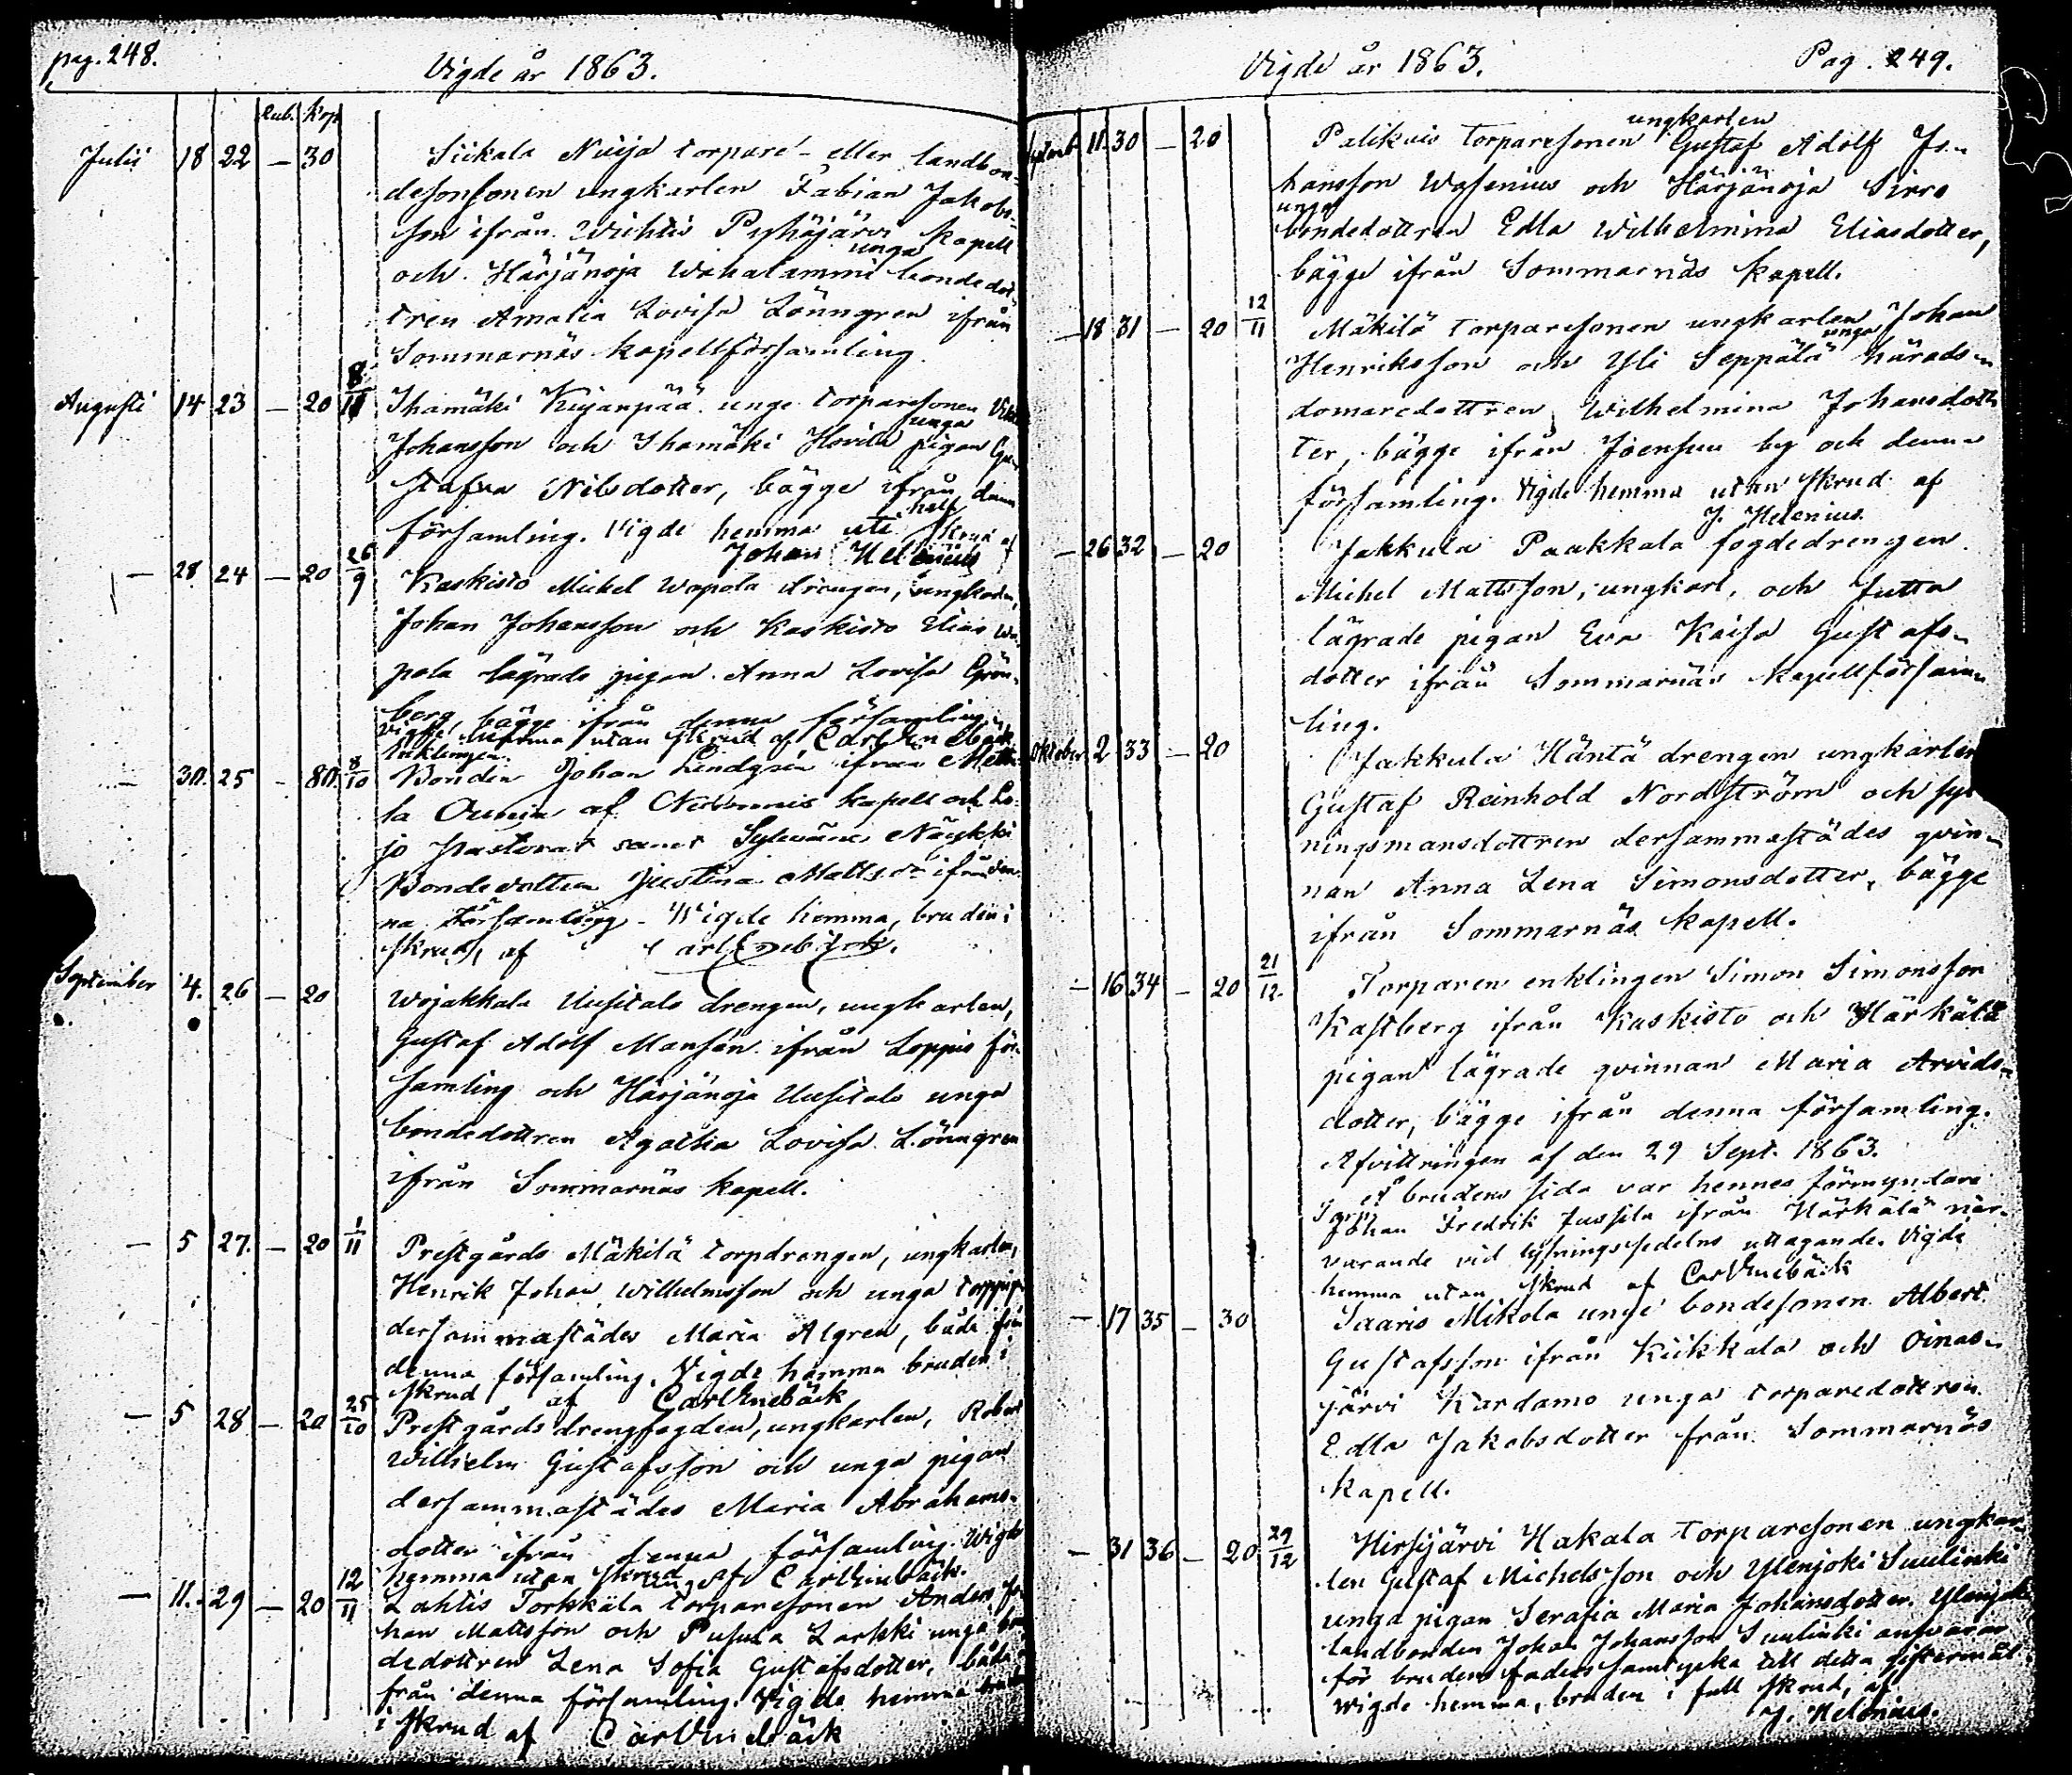 pag. 248.
Vigde år 1863.
Rub. Kop.
Julii 18 22 — 30 Siikala Nuija torpare- eller landbon-
desonsonen ungkarlen Fabian Jakobs-
son ifrån Wichtis Pyhäjärvi kapell
unga
och Härjänoja Wahalammi bondedot-
tren Amalia Lovisa Lönngren ifrån
Sommarnäs kapellförsamling.
Augusti 14 23 — 20 8/11 Ihamäki Kujanpää unge torparesonen
unga
Johansson och Ihamäki Hovila pigan Gu-
stafva Nilsdotter, bägge ifrån denna
half
församling. Vigde hemma uti skrud af
Johan Helenius
— 28 24 — 20 26/9 Kaskisto Michel Wapola drengen, ungkarlen,
Johan Johansson och Kaskisto Elias Wa-
pola lägrade pigan Anna Lovisa Grön-
berg, bägge ifrån denna församling.
Vigde hemma utan skrud af Carl Enebäck
Enklingen
— 30. 25 — 80. 8/10 Bonden Johan Lindgrén ifrån
la af Nummis kapell och Lo-
jo pastorat samt Sylvänä Näykki
Bondedottren Justina Mattsdr ifrån den-
na församling - Wigde hemma, bruden i
skrud, af Carl Enebäck.
September 4. 26 — 20 Wojakkala Uusitalo drengen, ungkarlen,
Gustaf Adolf Mansén ifrån Loppis för-
samling och Härjänoja Uusitalo unga
bondedottren Agatha Lovisa Lönngren
ifrån Sommarnäs kapell.
— 5 27. — 20 1/11 Prestgårds Mäkilä torpdrengen, ungkarlen,
Henrik Johan Wilhelmsson och unga torppigan
dersammastädes Maria Algren, både från
denna församling. Vigde hemma bruden i
skrud af Carl Enebäck
— 5 28 — 20 25/10 Prestgårds drengfogden, ungkarlen, Robert
Wilhelm Gustafsson och unga pigan
dersammastädes Maria Abrahams-
dotter ifrån denna församling. Wigde
hemma utan skrud af Carl Enebäck.
— 11. 29 — 20 12/11 Lahtis Torkkala torparesonen Anders Jo-
han Mattsson och Pusula Larkki unga bon-
dedottren Lena Sofia Gustafsdotter, båda
från denna församling. Vigde hemma bruden
i skrud af Carl Enebäck
Vigde år 1863.
Pag. 249.
ungkarlen
Septemb. 11. 30 — 20 Palikais torparesonen Gustaf Adolf Jo-
hansson Wasenius och Härjänoja Sirro
unga
bondedottren Edla Wilhelmina Eliasdotter,
bägge ifrån Sommarnäs kapell.
— 18 31 — 20 12/11 Mäkilä torparesonen ungkarlen Johan
unga
Henriksson och Yli Seppälä härads-
domaredottren Wilhelmina Johansdot-
ter, bägge ifrån Joensuu by och denna
församling. Vigde hemma utan skrud af
J. Helenius.
— 26 32 — 20 Jakkula Paakkala fogdedrengen
Michel Mattsson, ungkarl, och Jutta
lägrade pigan Eva Kaisa Gustafs-
dotter ifrån Sommarnäs kapellförsam-
ling.
Oktober 2 33 — 20 Jakkula Häntä drengen ungkarlen
Gustaf Reinhold Nordström och syt-
ningsmansdottren dersammastädes qvin-
nan Anna Lena Simonsdotter, bägge
ifrån Sommarnäs kapell.
— 16 34 — 20 21/12. Torparen enklingen Simon Simonsson
Kastberg ifrån Kaskisto och Härkälä
pigan lägrade qvinnan Maria Arvids-
dotter, bägge ifrån denna församling.
Afvittringen af den 29 Sept. 1863.
å brudens sida var hennes förmyndare
Johan Fredrik Jussila ifrån Härkälä när-
varande vid lysningssedelns uttagande. Vigde
hemma utan skrud af Carl Enebäck
— 17 35 — 30 Saaris Mikola unge bondesonen Albert
Gustafsson ifrån Kiikkala och Oinas-
järvi Kardamo unga torparedottren
Edla Jakobsdotter från Sommarnäs
kapell.
— 31 36 — 20 29/12 Hirsijärvi Hakala torparesonen ungkar-
len Gustaf Michelsson och Ylenjoki Suulinki
unga pigan Serafia Maria Johansdotter. Ylenjoki
landbonden Johan Johansson Suulinki ansvarar
för brudens faders samtycke till detta giftermål
Wigde hemma, bruden i full skrud, af
J. Helenius.